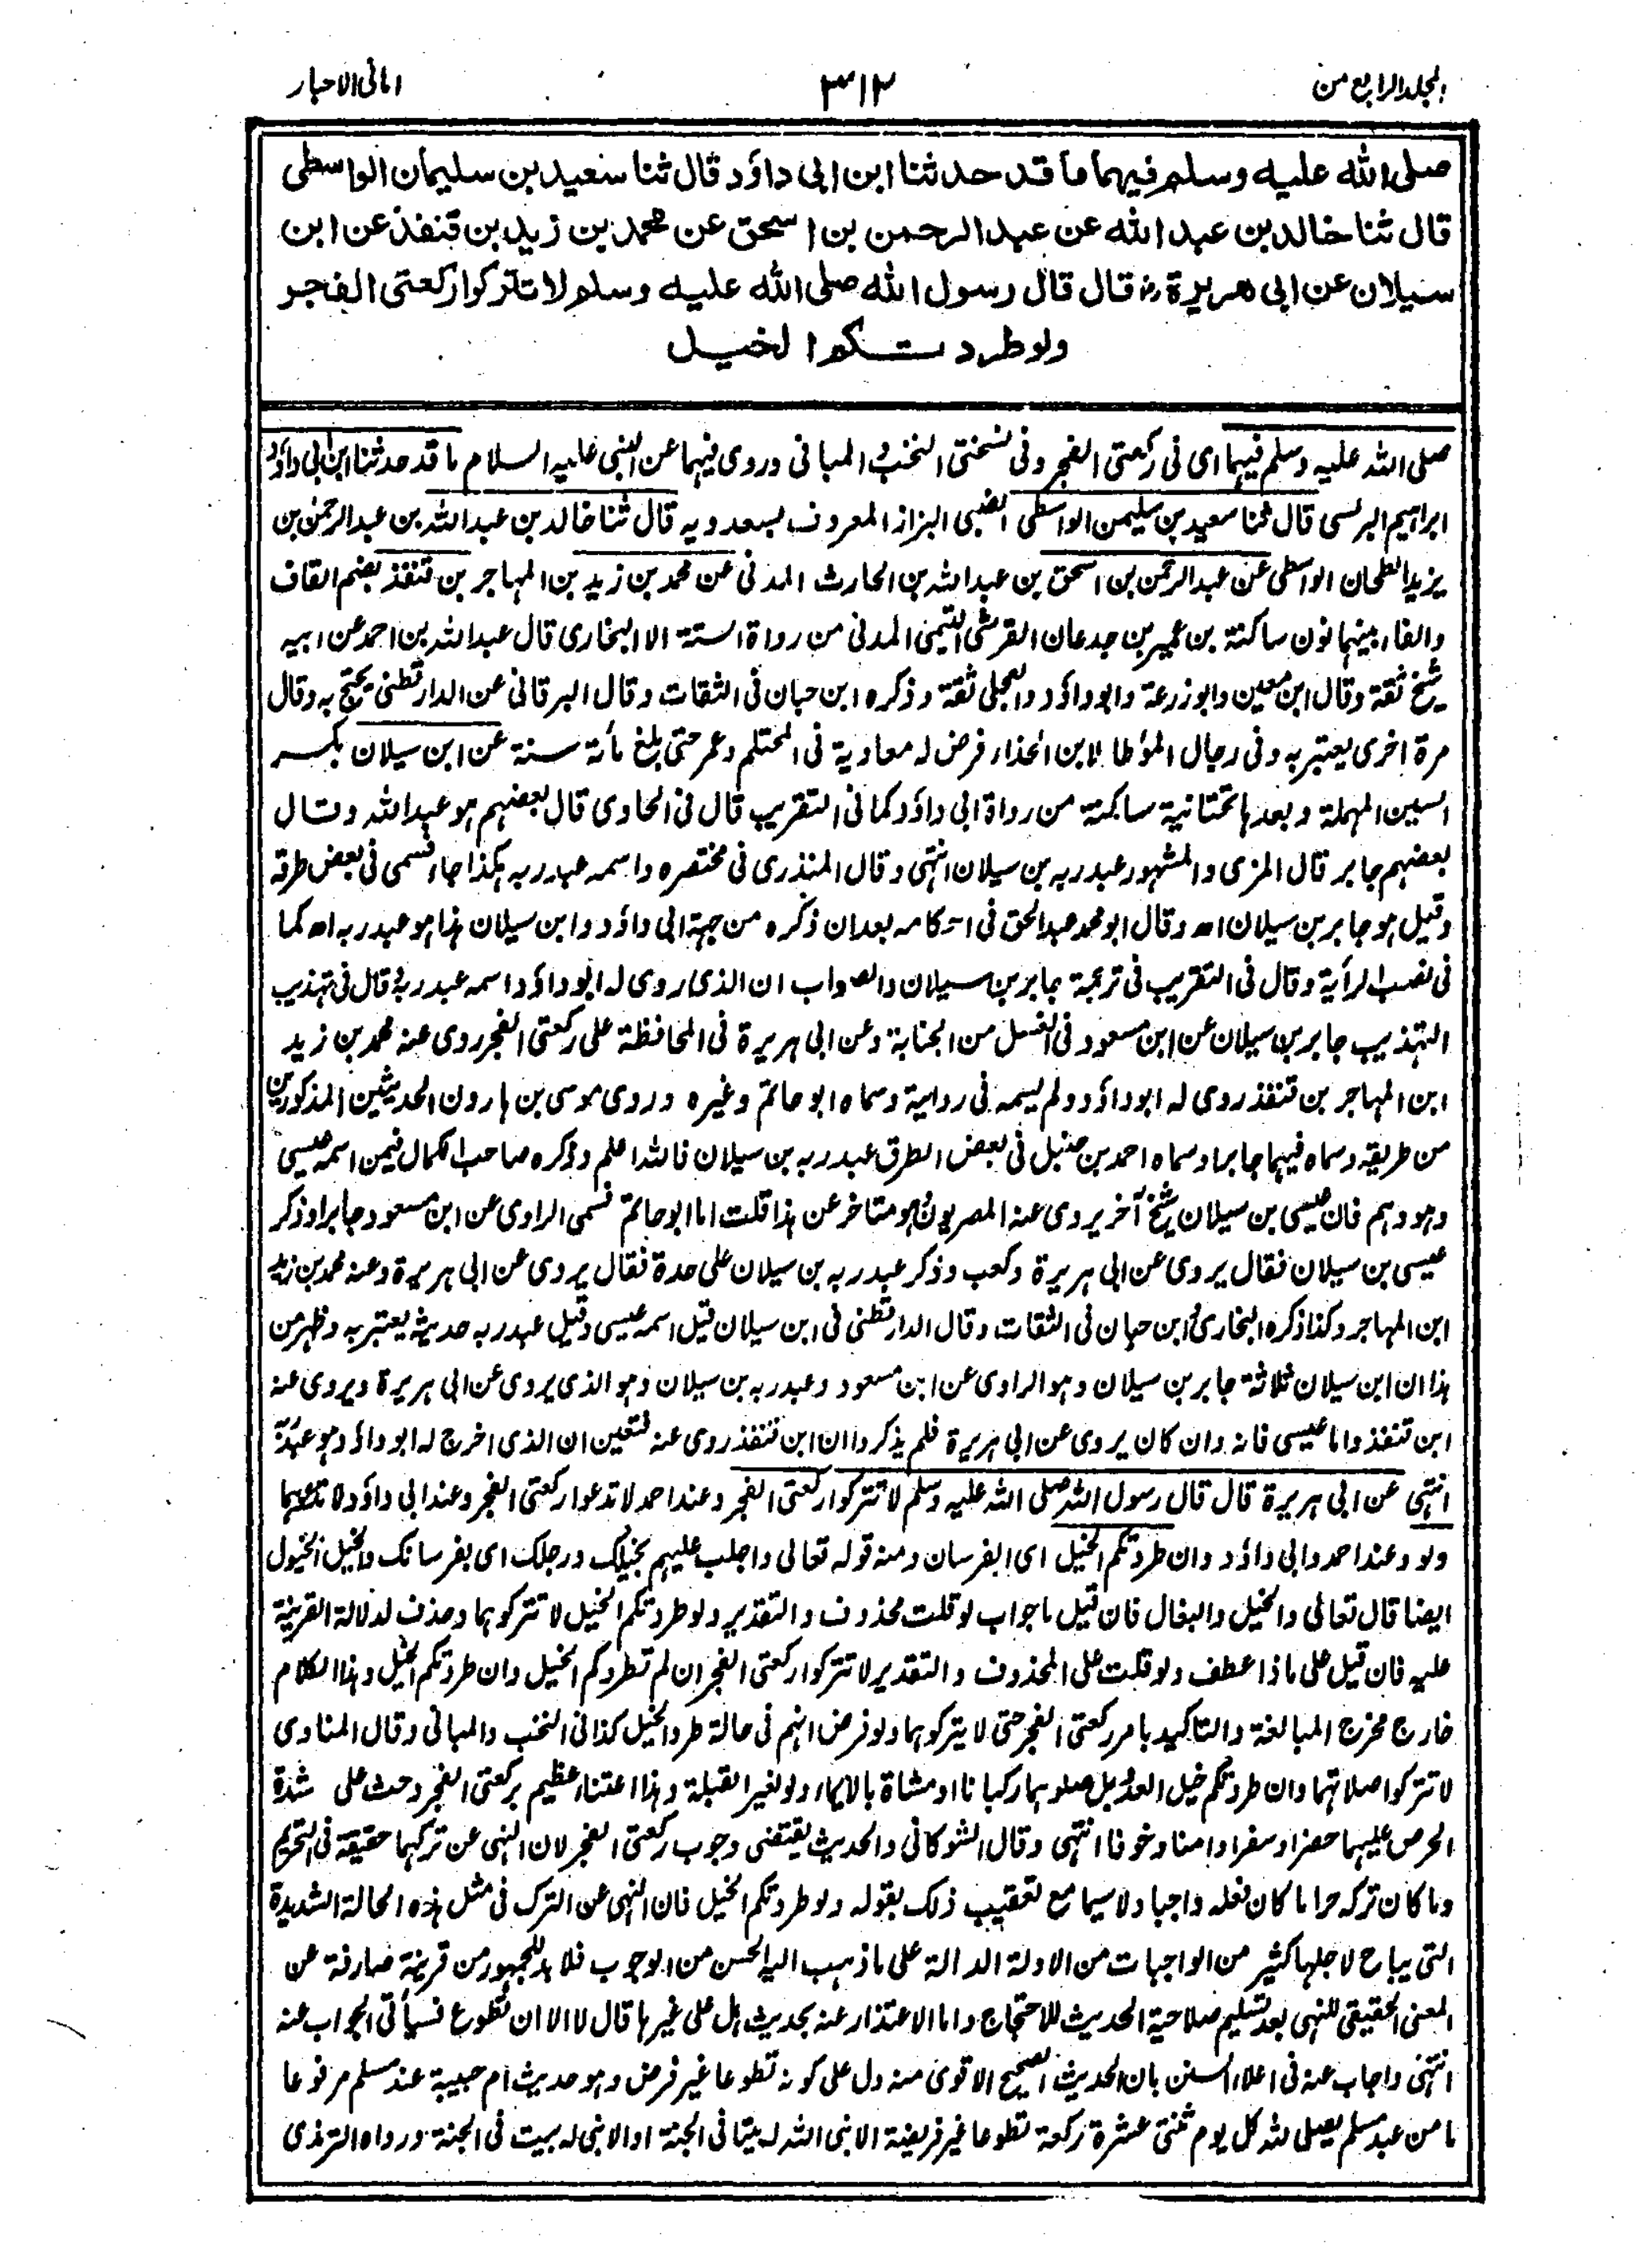 المجلد الرابع من
٣١٢
امانی الاحبار
صلی الله علیه وسلم فیهما ما قد حدثنا ابن ابی داؤد قال ثنا سعید بن سلیمان الواسطی
قال ثنا خالد بن عبد الله عن عبد الرحمن بن اسحق عن محمد بن زید بن قنفذ عن ابن
سیلان عن ابی هریرة رض قال قال رسول الله صلی الله علیه وسلم لا تترکوا رکعتی الفجر
ولو طردتکم الخیل
صلی الله علیه وسلم فیهما ای فی رکعتی الفجر وفی نسختی النخب والمبانی وروی فیهما عن النبی علیه السلام ما قد حدثنا ابن ابی داؤد
ابراهیم البرلسی قال ثنا سعید بن سلیمن الواسطی الضبی البزاز المعروف بسعدویه قال ثنا خالد بن عبد الله بن عبد الرحمن بن
یزید الطحان الواسطی عن عبد الرحمن بن اسحق بن عبد الله بن الحارث المدنی عن محمد بن زید بن المهاجر بن قنفذ بضم القاف
والفاء بینهما نون ساکنة بن عمیر بن جدعان القرشی التیمی المدنی من رواة الستة الا البخاری قال عبد الله بن احمد عن ابیه
شیخ ثقة وقال ابن معین وابو زرعة وابو داؤد والعجلی ثقة وذکره ابن حبان فی الثقات وقال البرقانی عن الدارقطنی یحتج به وقال
مرة اخری یعتبر به وفی رجال المؤطا لابن الحذاء فرض له معاویة فی المحتلم وعمر حتی بلغ مأة سنة عن ابن سیلان بکسر
السین المهملة وبعدها تحتانیة ساکنة من رواة ابی داؤد کما فی التقریب قال فی الحاوی قال بعضهم هو عبد الله وقال
بعضهم جابر قال المزی والمشهور عبد ربه بن سیلان انتهی وقال المنذری فی مختصره واسمه عبد ربه هکذا جاء مسمی فی بعض طرقه
وقیل هو جابر بن سیلان اه وقال ابو محمد عبد الحق فی احکامه بعد ان ذکره من جهة ابی داؤد وابن سیلان هذا هو عبد ربه اه کما
فی نصب الرأیة وقال فی التقریب فی ترجمة جابر بن سیلان والصواب ان الذی روی له ابو داؤد اسمه عبد ربه وقال فی تهذیب
التهذیب جابر بن سیلان عن ابن مسعود فی الغسل من الجنابة وعن ابی هریرة فی المحافظة علی رکعتی الفجر روی عنه محمد بن زید
ابن المهاجر بن قنفذ روی له ابو داؤد ولم یسمه فی روایة وسماه ابو حاتم وغیره وروی موسی بن هارون الحدیثین المذکورین
من طریقه وسماه فیهما جابرا وسماه احمد بن حنبل فی بعض الطرق عبد ربه بن سیلان فالله اعلم وذکره صاحب الکمال فیمن اسمه عیسی
وهو وهم فان عیسی بن سیلان شیخ آخر یروی عنه المصریون وهو متاخر عن هذا قلت اما ابو حاتم فسمی الراوی عن ابن مسعود جابرا وذکر
عیسی بن سیلان فقال یروی عن ابی هریرة وکعب وذکر عبد ربه بن سیلان علی حدة فقال یروی عن ابی هریرة وعنه محمد بن زید
ابن المهاجر وکذا ذکره البخاری وابن حبان فی الثقات وقال الدارقطنی فی ابن سیلان قیل اسمه عیسی وقیل عبد ربه حدیثه یعتبر به وظهر من
هذا ان ابن سیلان ثلاثة جابر بن سیلان وهو الراوی عن ابن مسعود وعبد ربه بن سیلان وهو الذی یروی عن ابی هریرة ویروی عنه
ابن قنفذ واما عیسی فانه وان کان یروی عن ابی هریرة فلم یذکروا ان ابن قنفذ روی عنه فتعین ان الذی اخرج له ابو داؤد وهو عبد ربه
انتهی عن ابی هریرة قال قال رسول الله صلی الله علیه وسلم لا تترکوا رکعتی الفجر وعند احمد لا تدعوا رکعتی الفجر وعند ابی داؤد لا تدعوهما
ولو وعند احمد وابی داؤد وان طردتکم الخیل ای الفرسان ومنه قوله تعالی واجلب علیهم بخیلک ورجلک ای بفرسانک والخیل الخیول
ایضا قال تعالی والخیل والبغال فان قیل ما جواب لو قلت محذوف والتقدیر ولو طردتکم الخیل لا تترکوهما وحذف لدلالة القرینة
علیه فان قیل علی ماذا عطف ولو قلت علی المحذوف والتقدیر لا تترکوا رکعتی الفجر ان لم تطردکم الخیل وان طردتکم الخیل وهذا الکلام
خارج مخرج المبالغة والتاکید بامر رکعتی الفجر حتی لا یترکوهما ولو فرض انهم فی حالة طرد الخیل کذا فی النخب والمبانی وقال المناوی
لا تترکوا صلاتهما وان طردتکم خیل العدو بل صلوهما رکبانا او مشاة بالایماء ولو لغیر القبلة وهذا اعتناء عظیم برکعتی الفجر وحث علی شدة
الحرص علیهما حضرا وسفرا وامنا وخوفا انتهی وقال الشوکانی والحدیث یقتضی وجوب رکعتی الفجر لان النهی عن ترکهما حقیقة فی التحریم
وما کان ترکه حراما کان فعله واجبا ولا سیما مع تعقیب ذلک بقوله ولو طردتکم الخیل فان النهی عن الترک فی مثل هذه الحالة الشدیدة
التی یباح لاجلها کثیر من الواجبات من الادلة الدالة علی ما ذهب الیه الحسن من الوجوب فلا بد للجمهور من قرینة صارفة عن
المعنی الحقیقی للنهی بعد تسلیم صلاحیة الحدیث للاحتجاج واما الاعتذار عنه بحدیث هل علی غیرها قال لا الا ان تطوع فسیأتی الجواب عنه
انتهی واجاب عنه فی اعلاء السنن بان الحدیث الصحیح الاقوی منه دل علی کونه تطوعا غیر فرض وهو حدیث ام حبیبة عند مسلم مرفوعا
ما من عبد مسلم یصلی لله کل یوم ثنتی عشرة رکعة تطوعا غیر فریضة الا بنی الله له بیتا فی الجنة او الا بنی له بیت فی الجنة ورواه الترمذی